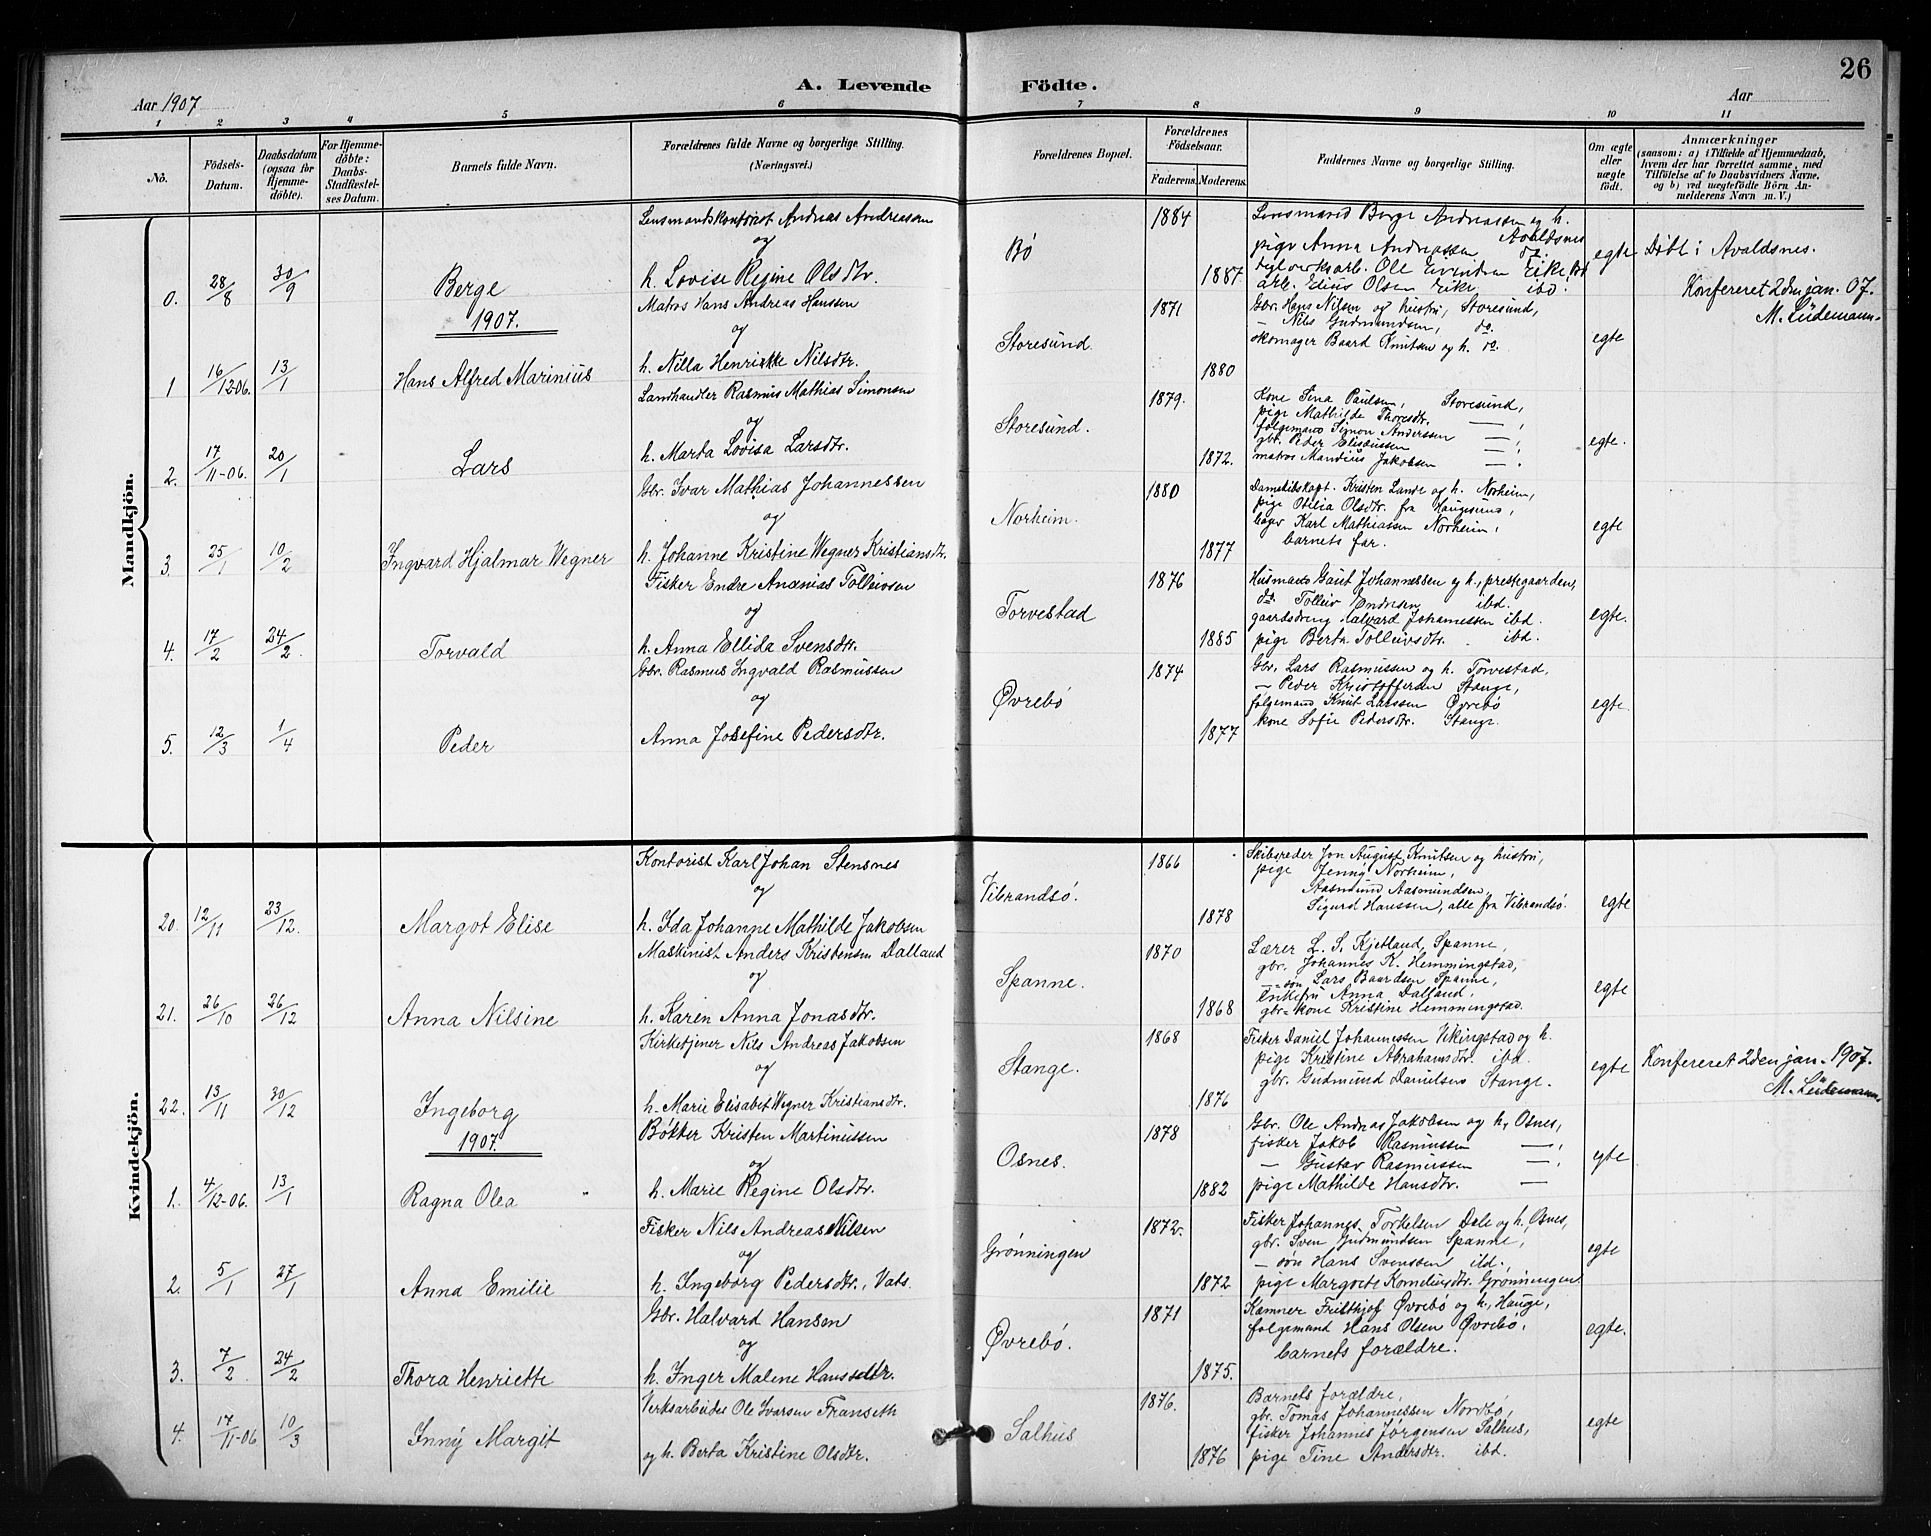 26
Aar 1907
A. Levende Födte.
Aar
1 2 3 4 5 6 7 8 9 10 11
No.
Födsels-Datum.
Daabsdatum (ogsaa for Hjemme-döbte).
For Hjemme-döbte: Daabs-Stadfæstel-ses Datum.
Barnets fulde Navn.
Forældrenes fulde Navne og borgerlige Stilling. (Næringsvei.)
Forældrenes Bopæl.
Forældrenes Födselsaar.
Faderens. Moderens.
Faddernes Navne og borgerlige Stilling.
Om ægte eller uægte födt.
Anmærkninger
(saasom: a) i Tilfælde af Hjemmedaab, hvem der har forrettet samme, med Tilföielse af to Daabsvidners Navne, og b) ved uægtefödte Börn An-melderens Navn m. V.)
Mandkjön.
0. 28/8 30/9 Berge
Lensmandskontorist Andreas Andreassen
og
h. Lovise Regine Olsdtr.
Bø
1884
1887
Lensmand Berge Andreassen og h. Avaldsnes
pige Anna Andreassen do.
teglverksarb. Ole Eivindsen Eike Bø
arb. Edius Olsen Eike ibd.
egte
Døbt i Avaldsnes.
Konfereret 2den jan. 07.
M. Lüdemann.
1907.
1 16/12-06. 13/1 Hans Alfred Marinius
Matros Hans Andreas Hanssen
og
h. Nilla Henrikke Nilsdtr.
Storesund.
1871
1880
Gbr. Hans Nilsen og hustru, Storesund,
— Nils Gudmundsen, do.
skomager Baard Knutsen og h. do.
egte
2. 17/11-06. 20/1 Lars
Landhandler Rasmus Mathias Simonsen
og
h. Marta Lovisa Larsdtr.
Storesund.
1879.
1872.
Kone Tina Paulsen, Storesund,
pige Mathilde Thoresdtr. — ,
følgemand Simon Anderssen — ,
gbr. Peder Elisæussen — ,
matros Mandius Jakobsen — .
egte.
3. 25/1 10/2 Ingvard Hjalmar Wegner
Gbr. Ivar Mathias Johannessen
og
h. Johanne Kristine Wegner Kristiansdtr.
Norheim.
1880
1877
Damskibskapt. Kristen Lande og h. Norheim,
pige Otilia Olsdtr. fra Haugesund,
bager Karl Mathiassen Norheim,
barnets far.
egte
4. 17/2 24/2. Torvald
Fisker Endre Ananias Tolleivsen
og
h. Anna Ellida Svensdtr.
Torvestad
1876
1885
Husmand Gaut Johannessen og h., prestegaarden,
do. Tolleiv Endresen ibd.
gaardsdreng Halvard Johannessen ibd.
pige Berta Tolleivsdtr. ibd.
egte.
5. 12/3 1/4 Peder
Gbr. Rasmus Ingvald Rasmussen
og
Anna Josefine Pedersdtr.
Øvrebø
1874
1877
Gbr. Lars Rasmussen og h. Torvestad,
— Peder Kristoffersen Stange,
følgemand Knut Larssen Øvrebø
kone Sofie Pedersdtr. Stange.
egte.
Kvindekjön.
20. 12/11 23/12. Margot Elise
Kontorist Karl Johan Stensnes
og
h. Ida Johanne Mathilde Jakobsen
Vibrandsö.
1866
1878
Skibsreder Jon August Knutsen og hustru,
pige Jenny Norheim,
Aasmund Aasmundsen,
Sigurd Hanssen, alle fra Vibrandsö.
egte
21. 26/10 26/12 Anna Nilsine
Maskinist Anders Kristensen Dalland
og
h. Karen Anna Jonasdtr.
Spanne.
1870
1868
Lærer L. S. Kjetland, Spanne,
gbr. Johannes K. Hemmingstad,
—søn Lars Baardsen Spanne,
enkefru Anna Dalland,
gbr.-kone Kristine Hemmingstad.
egte
22. 13/11 30/12 Ingeborg
Kirketjener Nils Andreas Jakobsen
og
h. Marie Elisabet Wegner Kristiansdtr.
Stange.
1868
1876
Fisker Daniel Johannessen Vikingstad og h.
pige Kristine Abrahamsdtr. ibd.
gbr. Gudmund Danielsen Stange.
egte
Konfereret 2den jan. 1907.
M. Lüdemann.
1907.
1. 4/12-06. 13/1 Ragna Olea
Bøkker Kristen Martinussen
og
h. Marie Regine Olsdtr.
Osnes.
1878
1882
Gbr. Ole Andreas Jakobsen og h, Osnes,
fisker Jakob Rasmussen — ,
— Gustav Rasmussen — ,
pige Mathilde Hansdtr. —
egte
2. 5/1 27/1 Anna Emilie
Fisker Nils Andreas Nilsen
og
h. Ingeborg Pedersdtr., Vats.
Grønningen
1872.
1872
Fisker Johannes Torkelsen Dale og h, Osnes,
gbr. Sven Gudmundsen Spanne,
— søn Hans Svensen ibd.,
pige Margrete Korneliusdtr. Grønningen
egte
3. 7/2 24/2 Thora Henriette
Gbr. Halvard Hansen
og
h. Inger Malene Hansdtr.
Øvrebø.
1871
1875.
Kæmner Fritthjof Øvrebø og h, Hauge,
følgemand Hans Olsen Øvrebø.
barnets forældre.
egte.
4. 17/11-06 10/3 Inny Margit
Verksarbeider Ole Ivarsen Franseth
og h. Berta Kristine Olsdtr.
Salhus
1876.
1876
Barnets forældre,
gbr. Tomas Johannessen Nordbø,
fisker Johannes Jørgensen Salhus,
pige Tine Andersdtr. ibd.
egte